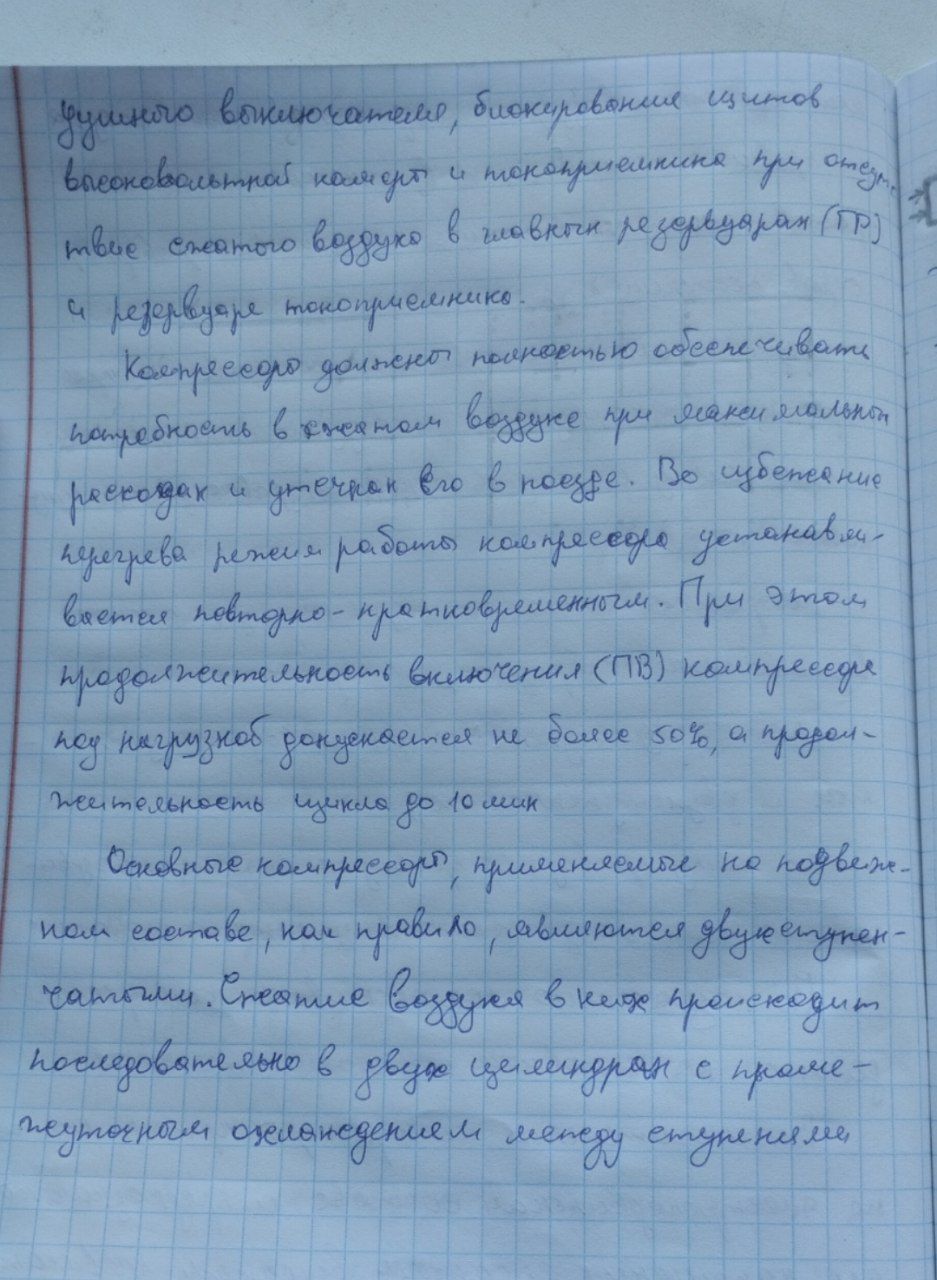 душного выключателя, блокирования щитов
высоковольтной камеры и токоприемника при отсутс-
твие сжатого воздуха в главных резервуарах (ГР)
и резервуаре токоприемника.
Компрессоры должны полностью обеспечивать
потребность в сжатом воздухе при максимальных
расходах и утечках его в поезде. Во избежание
перегрева режим работы компрессора устанавли-
вается повторно-кратковременным. При этом
продолжительность включения (ПВ) компрессора
под нагрузкоб допускается не более 50%, а продол-
жительность цикла до 10 мин
Основные компрессоры, применяемые на подвиж-
ном составе, как правило, являются двухступен-
чатыми. Сжатие воздуха в них происходит
последовательно в двух цилиндрах с проме-
жуточным охлаждением между ступенями